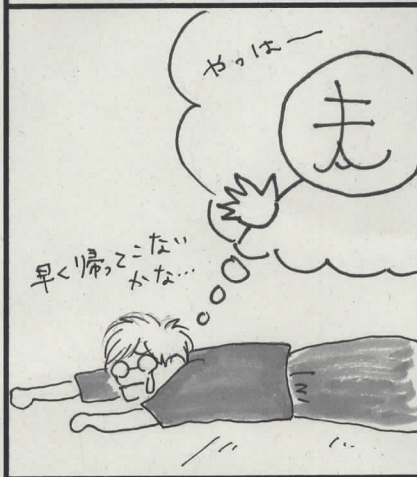 やっはー
夫
早く帰ってこない
かな…